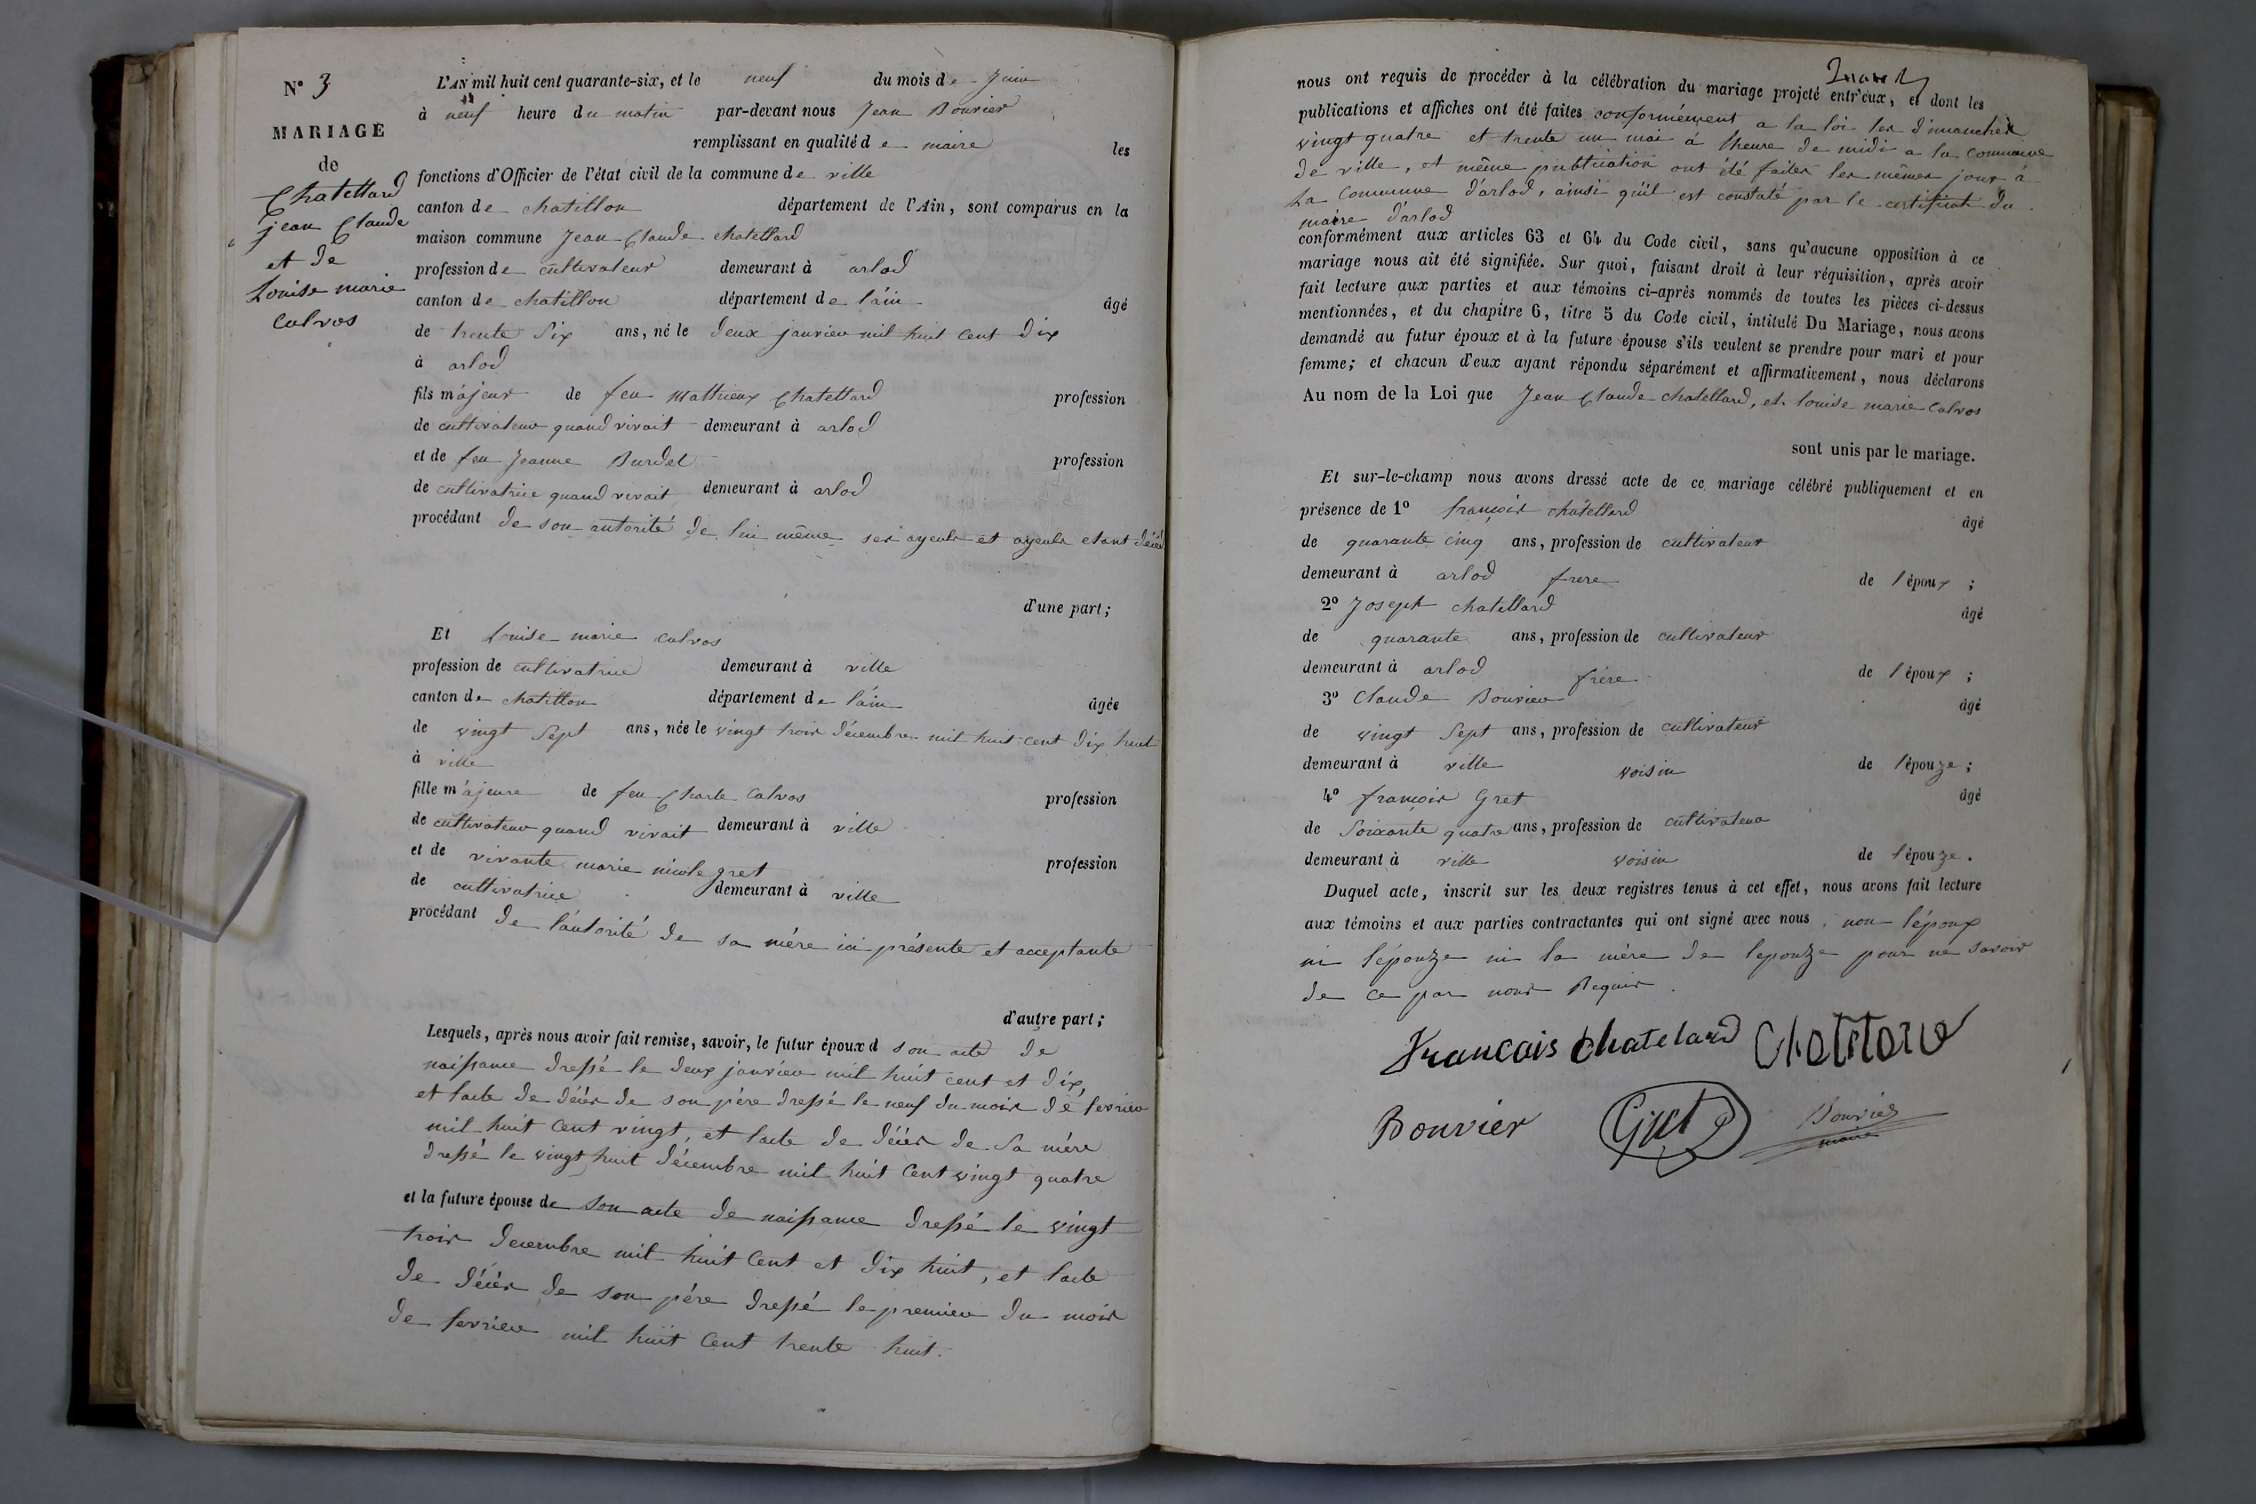 N° 3
MARIAGE
de
Chatellard
jean Claude
et de
Louise marie
Calvos
L'AN mil huit cent quarante-six, et le neuf du mois de Juin
à neuf heure du matin par-devant nous Jean Bouvier
remplissant en qualité de maire les
fonctions d'Officier de l'état civil de la commune de ville
canton de chatillon département de l'Ain, sont comparus en la
maison commune Jean Claude chatellard
profession de cultivateur demeurant à arlod
canton de chatillon département de l'ain âgé
de trente Six ans, né le deux janvier mil huit cent dix
à arlod
fils májeur de feu Matthieux Chatellard profession
de cultivateur quand vivait demeurant à arlod
et de feu Jeanne Burdet profession
de cultivatrice quand vivait demeurant à arlod
procédant de son autorité de lui même ses ayeuls et ayeula etant décéd
d'une part;
Et Louise marie calvos
profession de cultivatrice demeurant à ville
canton de chatillon département de l'ain âgée
de vingt Sept ans, née le vingt trois décembre mil huit cent dix huit
à ville
fille májeure de feu Charle Calvos profession
de cultivateur quand vivait demeurant à ville
et de vivante marie nicole gret profession
de cultivatrice demeurant à ville
procédant de l'autorité de sa mère ici présente et acceptante
d'autre part;
Lesquels, après nous avoir fait remise, savoir, le futur époux d son acte de
naissance dressé le deux janvier mil huit cent et dix,
et lacte de décès de son père dressé le neuf du mois de fevrier
mil huit cent vingt, et lacte de décès de Sa mère
dressé le vingt huit décembre mil huit Cent vingt quatre
et la future épouse de Son acte de naissance dressé le vingt
trois decembre mil huit Cent et dix huit, et lacte
de décès de son père dressé le premier du mois
de fevrier mil huit Cent trente huit.
nous ont requis de procéder à la célébration du mariage projeté entr'eux, et dont les
publications et affiches ont été faites conformément a la loi les dimanches
vingt quatre et trente un mai à lheure de midi a la Commune
de ville, et même publication ont été faites les mêmes jour á
La Commune d'arlod, ainsi quil est constaté par le certificat du
maire d'arlod
conformément aux articles 63 et 64 du Code civil, sans qu'aucune opposition à ce
mariage nous ait été signifiée. Sur quoi, faisant droit à leur réquisition, après avoir
fait lecture aux parties et aux témoins ci-après nommés de toutes les pièces ci-dessus
mentionnées, et du chapitre 6, titre 5 du Code civil, intitulé Du Mariage, nous avons
demandé au futur époux et à la future épouse s'ils veulent se prendre pour mari et pour
femme; et chacun d'eux ayant répondu séparément et affirmativement, nous déclarons
Au nom de la Loi que Jean Claude chatellard, et louise marie Calvos
sont unis par le mariage.
Et sur-le-champ nous avons dressé acte de ce mariage célébré publiquement et en
présence de 1° françois chatellard âgé
de quarante cinq ans, profession de cultivateur
demeurant à arlod frere de l'époux ;
2° Joseph chatellard âgé
de quarante ans, profession de cultivateur
demeurant à arlod frère de l'époux ;
3° Claude Bouvier âgé
de vingt Sept ans, profession de cultivateur
demeurant à ville voisin de l'épouze ;
4° françois Gret âgé
de Soixante quatre ans, profession de cultivateur
demeurant à ville voisin de l'épouze .
Duquel acte, inscrit sur les deux registres tenus à cet effet, nous avons fait lecture
aux témoins et aux parties contractantes qui ont signé avec nous, non l'époux
ni l'épouze ni la mère de lepouze pour ne savoir
de ce par nous Requis.
Francois chatelard Chatelard
Bouvier Gret Bouvier
maire